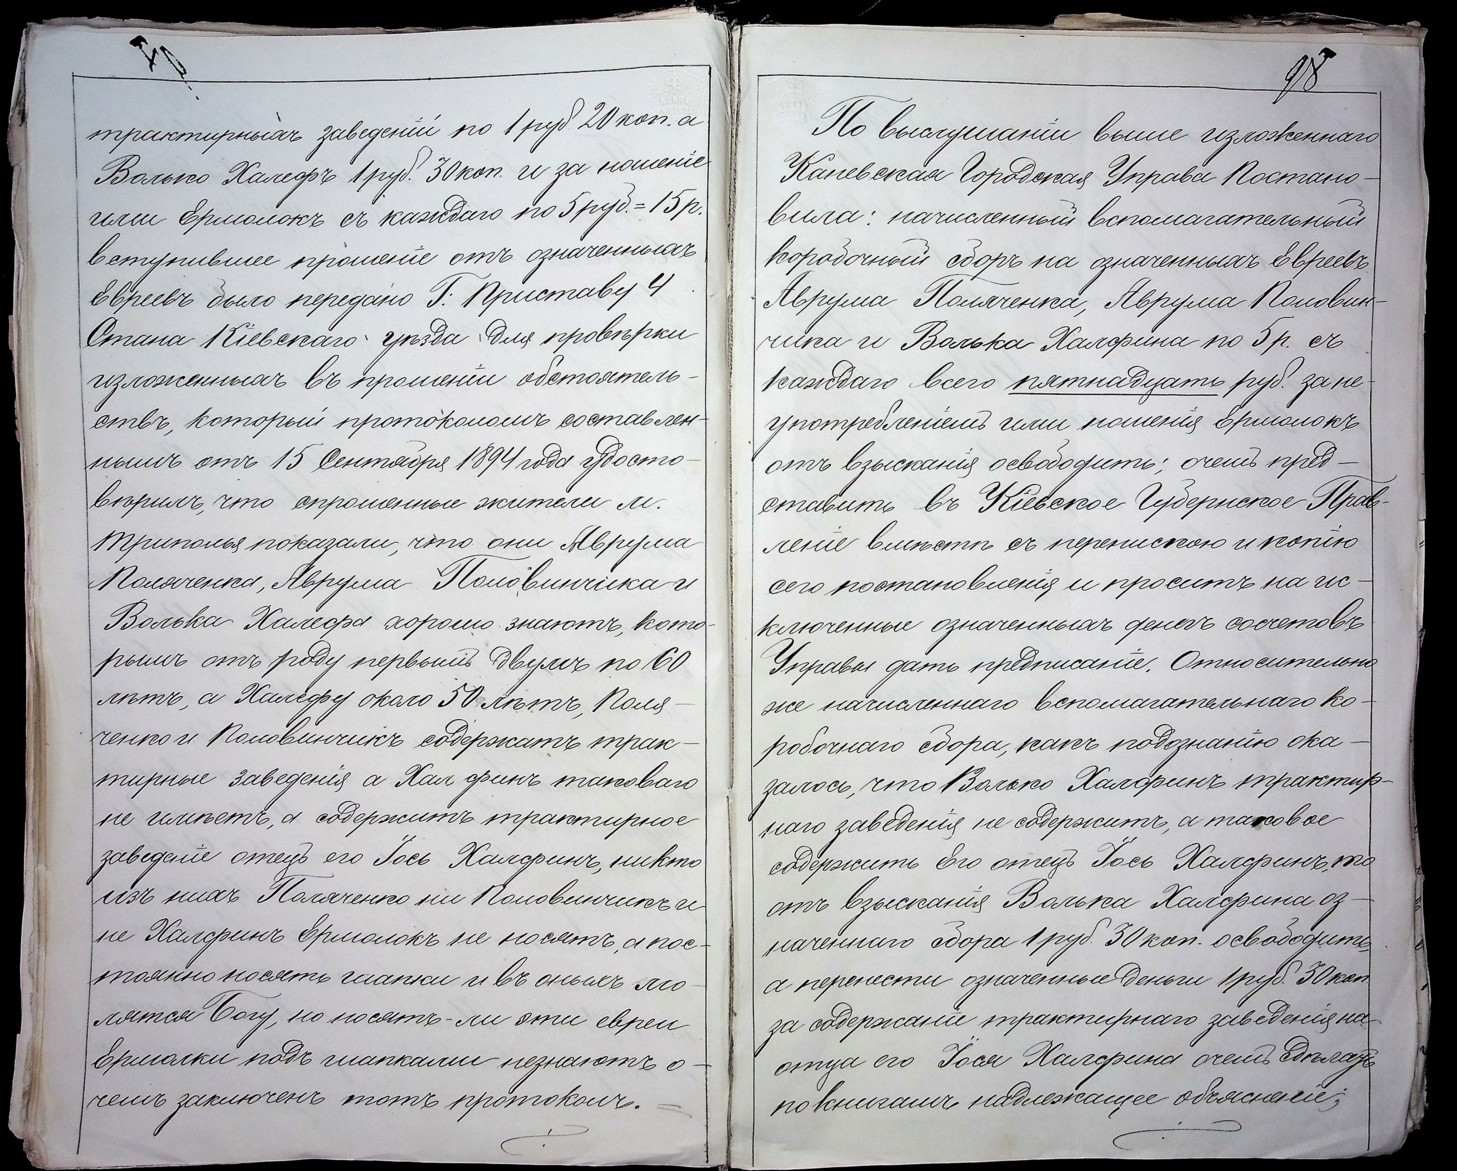 98
трактирныхъ заведеній по 1 руб 20 коп. а
Волько Халефъ 1 руб. 30 коп. и за ношеніе
ими Ермолокъ съ каждаго по 5 руб. = 15 р.
вступившее прошеніе отъ означенныхъ
Евреевъ было передано Г: Приставу 4
Стана Кіевскаго уѣзда для провѣрки
изложенныхъ въ прошеніи обстоятель-
ствъ, который протоколомъ составлен-
нымъ отъ 15 Сентября 1894 года удосто-
вѣрилъ, что спрошенные жители м.
Триполья показали, что они Аврума
Поляченка, Аврума Половинчика и
Волька Халефа хорошо знаютъ, кото-
рымъ отъ роду первымъ двумъ по 60
лѣтъ, а Халефу около 50 лѣтъ, Поля-
ченко и Половинчикъ содержатъ трак-
тирные заведенія а Халфинъ таковаго
не имѣетъ, а содержитъ трактирное
заведеніе отецъ его Іось Халфинъ, никто
изъ нихъ Поляченко ни Половинчикъ и
не Халфинъ Ермолокъ не носятъ, а пос-
тоянно носятъ шапки и въ оныхъ мо-
лятся Богу, но носятъ-ли эти евреи
Ермолки подъ шапками незнаютъ о
чемъ заключенъ тотъ протоколъ. =
По выслушаніи выше изложеннаго
Каневская Городская Управа Постано-
вила: начисленный вспомагательный
коробочный сборъ на означенныхъ Евреевъ
Аврума Поляченка, Аврума Половин-
чика и Волька Халфина по 5 р. съ
каждаго всего пятнадцать руб. за не-
употребленіемъ ими ношенія Ермолокъ
отъ взысканія освободить; о чемъ пред-
ставить въ Кіевское Губернское Прав-
леніе вмѣстѣ съ перепискою и копіею
сего постановленія и проситъ на ис-
ключенные означенныхъ денегъ сосчетовъ
Управы дать предписаніе. Относительно
же начисленнаго вспомагательнаго ко-
робочнаго сбора, какъ подознанію ока-
залось, что Волько Халфинъ трактир-
наго заведенія не содержитъ, а таковое
содержитъ Его отецъ Іось Халфинъ, то
отъ взысканія Волька Халфина оз-
наченнаго сбора 1 руб. 30 коп. освободить,
а перенести означенные деньги 1 руб. 30 коп
за содержаніе трактирнаго заведенія на
отца его Іося Халфина о чемъ сдѣлать
по книгамъ надлежащее объясненіе;